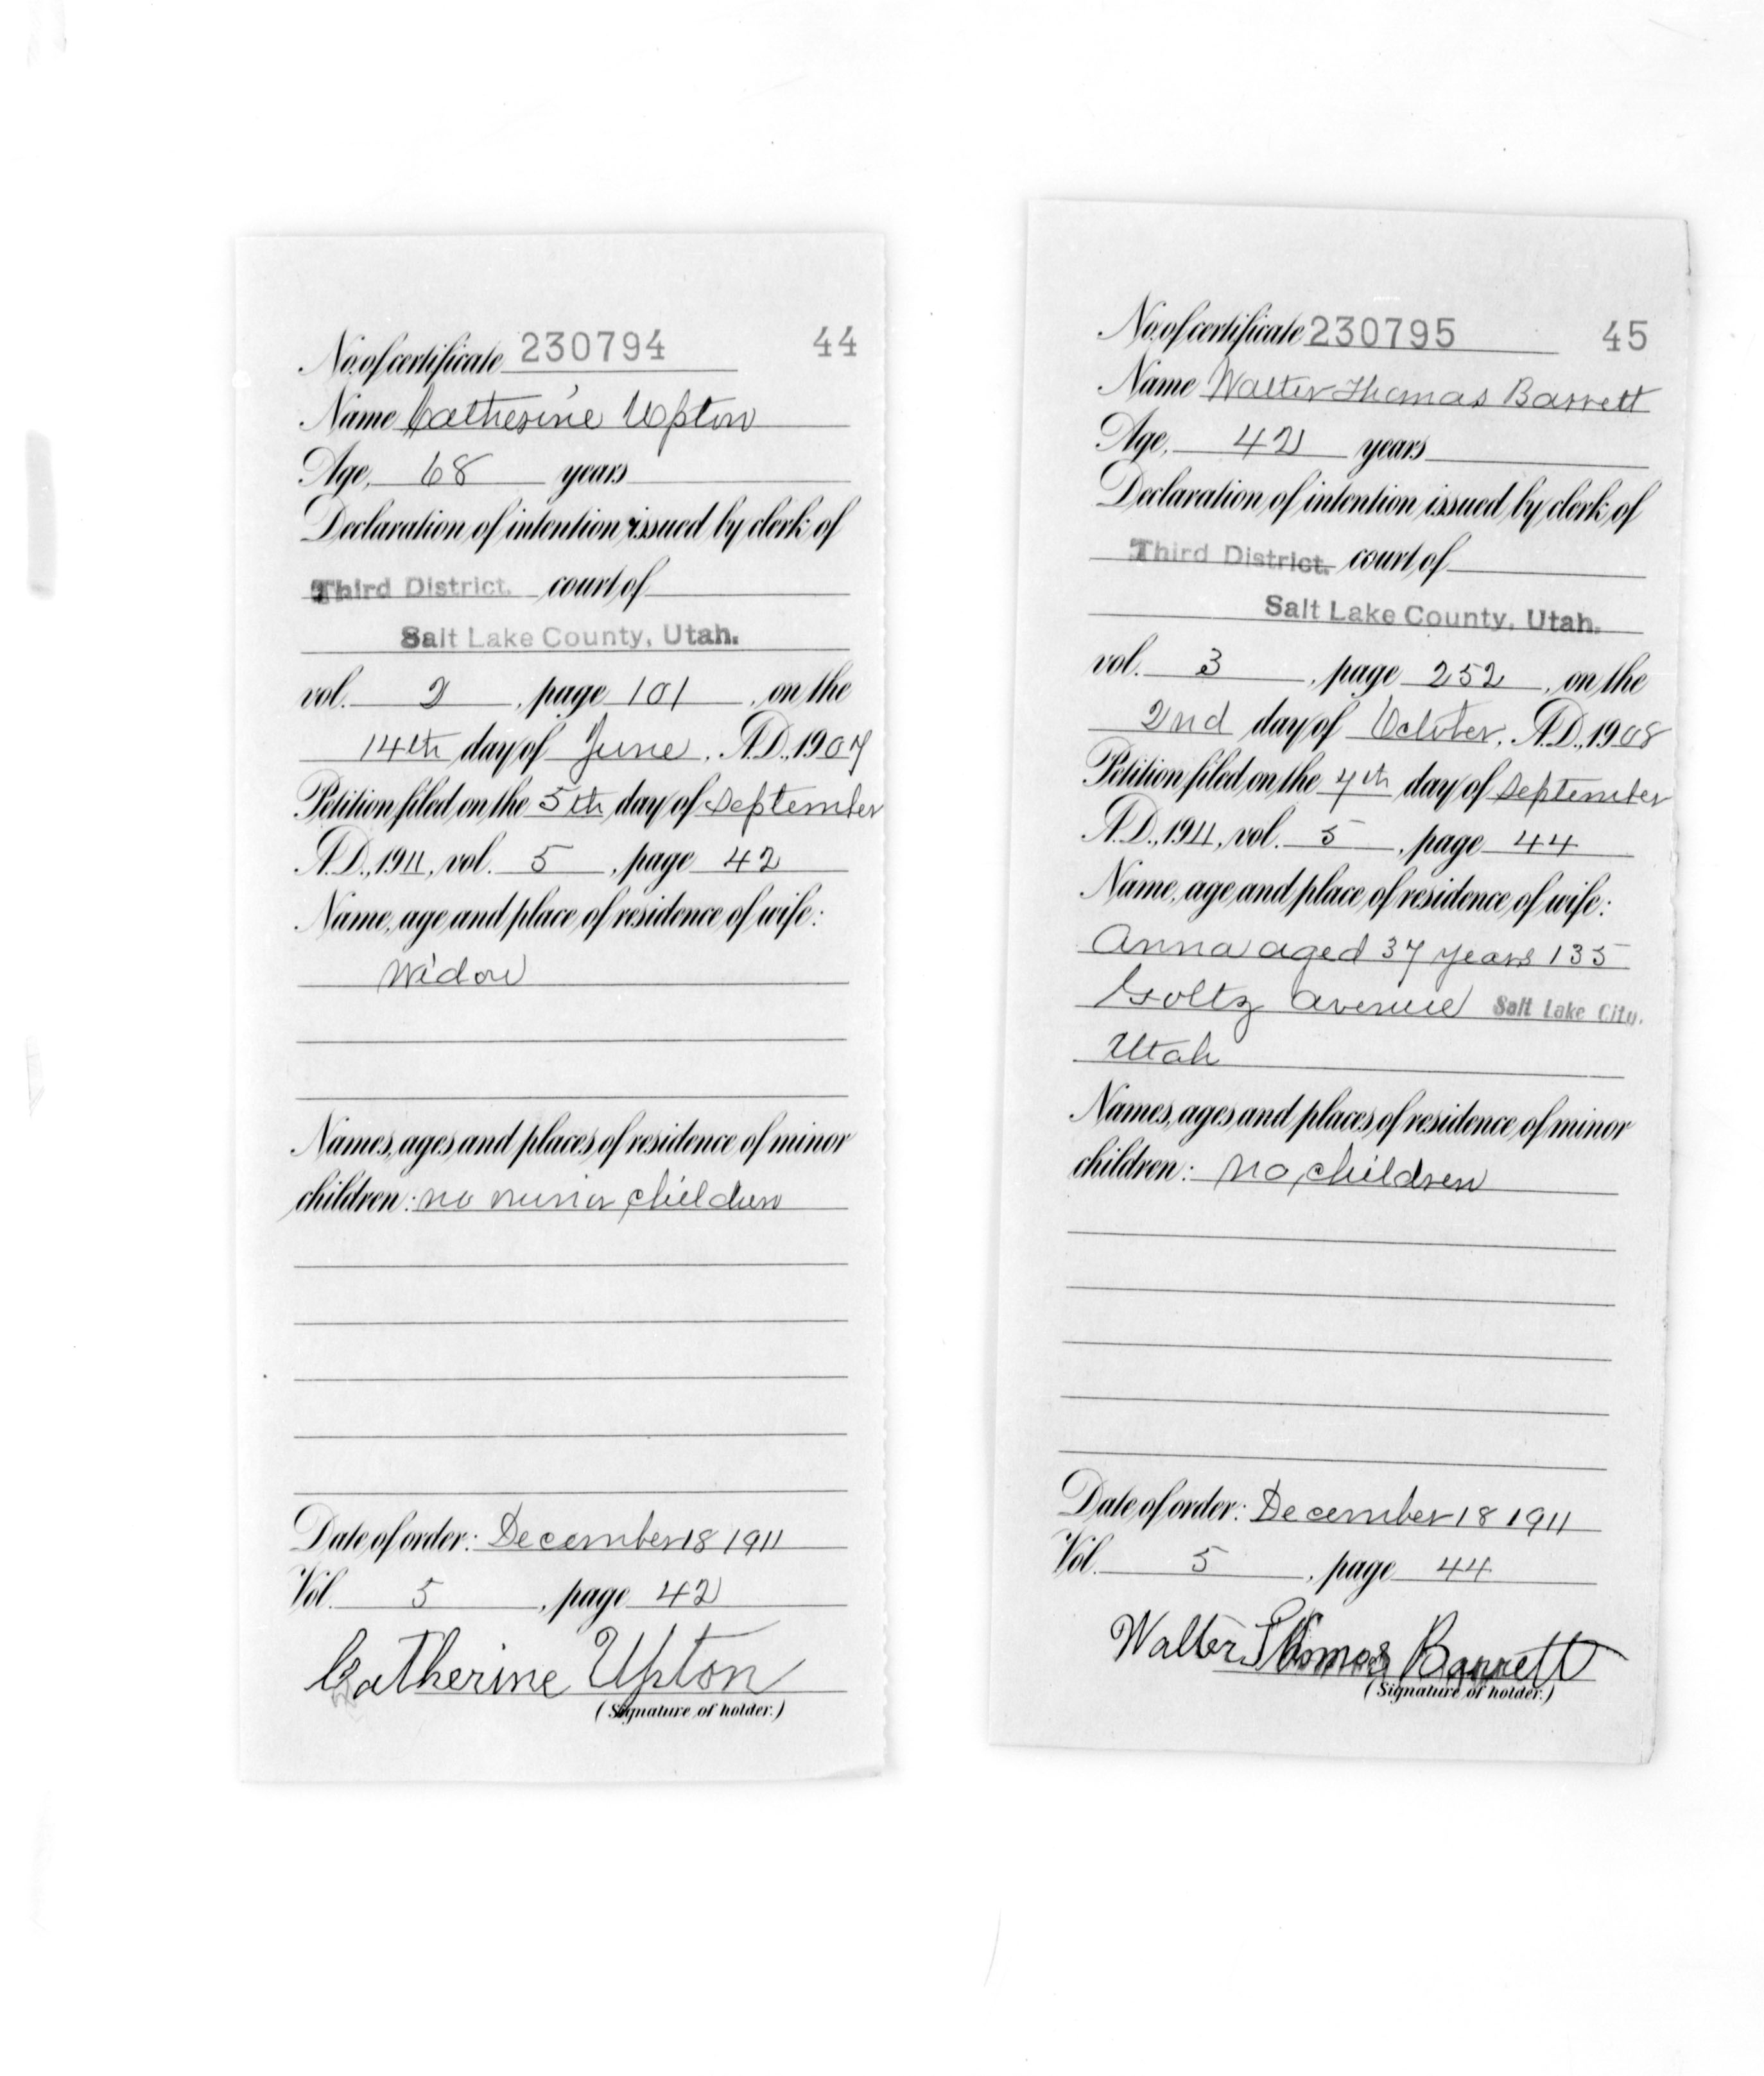 No. of certificate 230794 44
Name Catherine Upton
Age, 68 years
Declaration of intention issued by clerk of
Third District. court of
Salt Lake County, Utah.
vol. 2, page 101, on the
14th day of June, A.D., 1907
Petition filed on the 5th day of September
A.D., 1911, vol. 5, page 42
Name, age and place of residence of wife:
Widow
Names, ages and places of residence of minor
children: no minor children
Date of order: December 18 1911
Vol. 5, page 42
Catherine Upton
(Signature of holder.)
No. of certificate 230795 45
Name Walter Thomas Barrett
Age, 42 years
Declaration of intention issued by clerk of
Third District. court of
Salt Lake County, Utah.
vol. 3, page 252, on the
2nd day of October, A.D., 1908
Petition filed on the 7th day of September
A.D., 1911, vol. 5, page 44
Name, age and place of residence of wife:
Anna aged 37 years 135
Goltz avenue Salt Lake City.
Utah
Names, ages and places of residence of minor
children: no children
Date of order: December 18 1911
Vol. 5, page 44
Walter Thomas Barrett
(Signature of holder.)